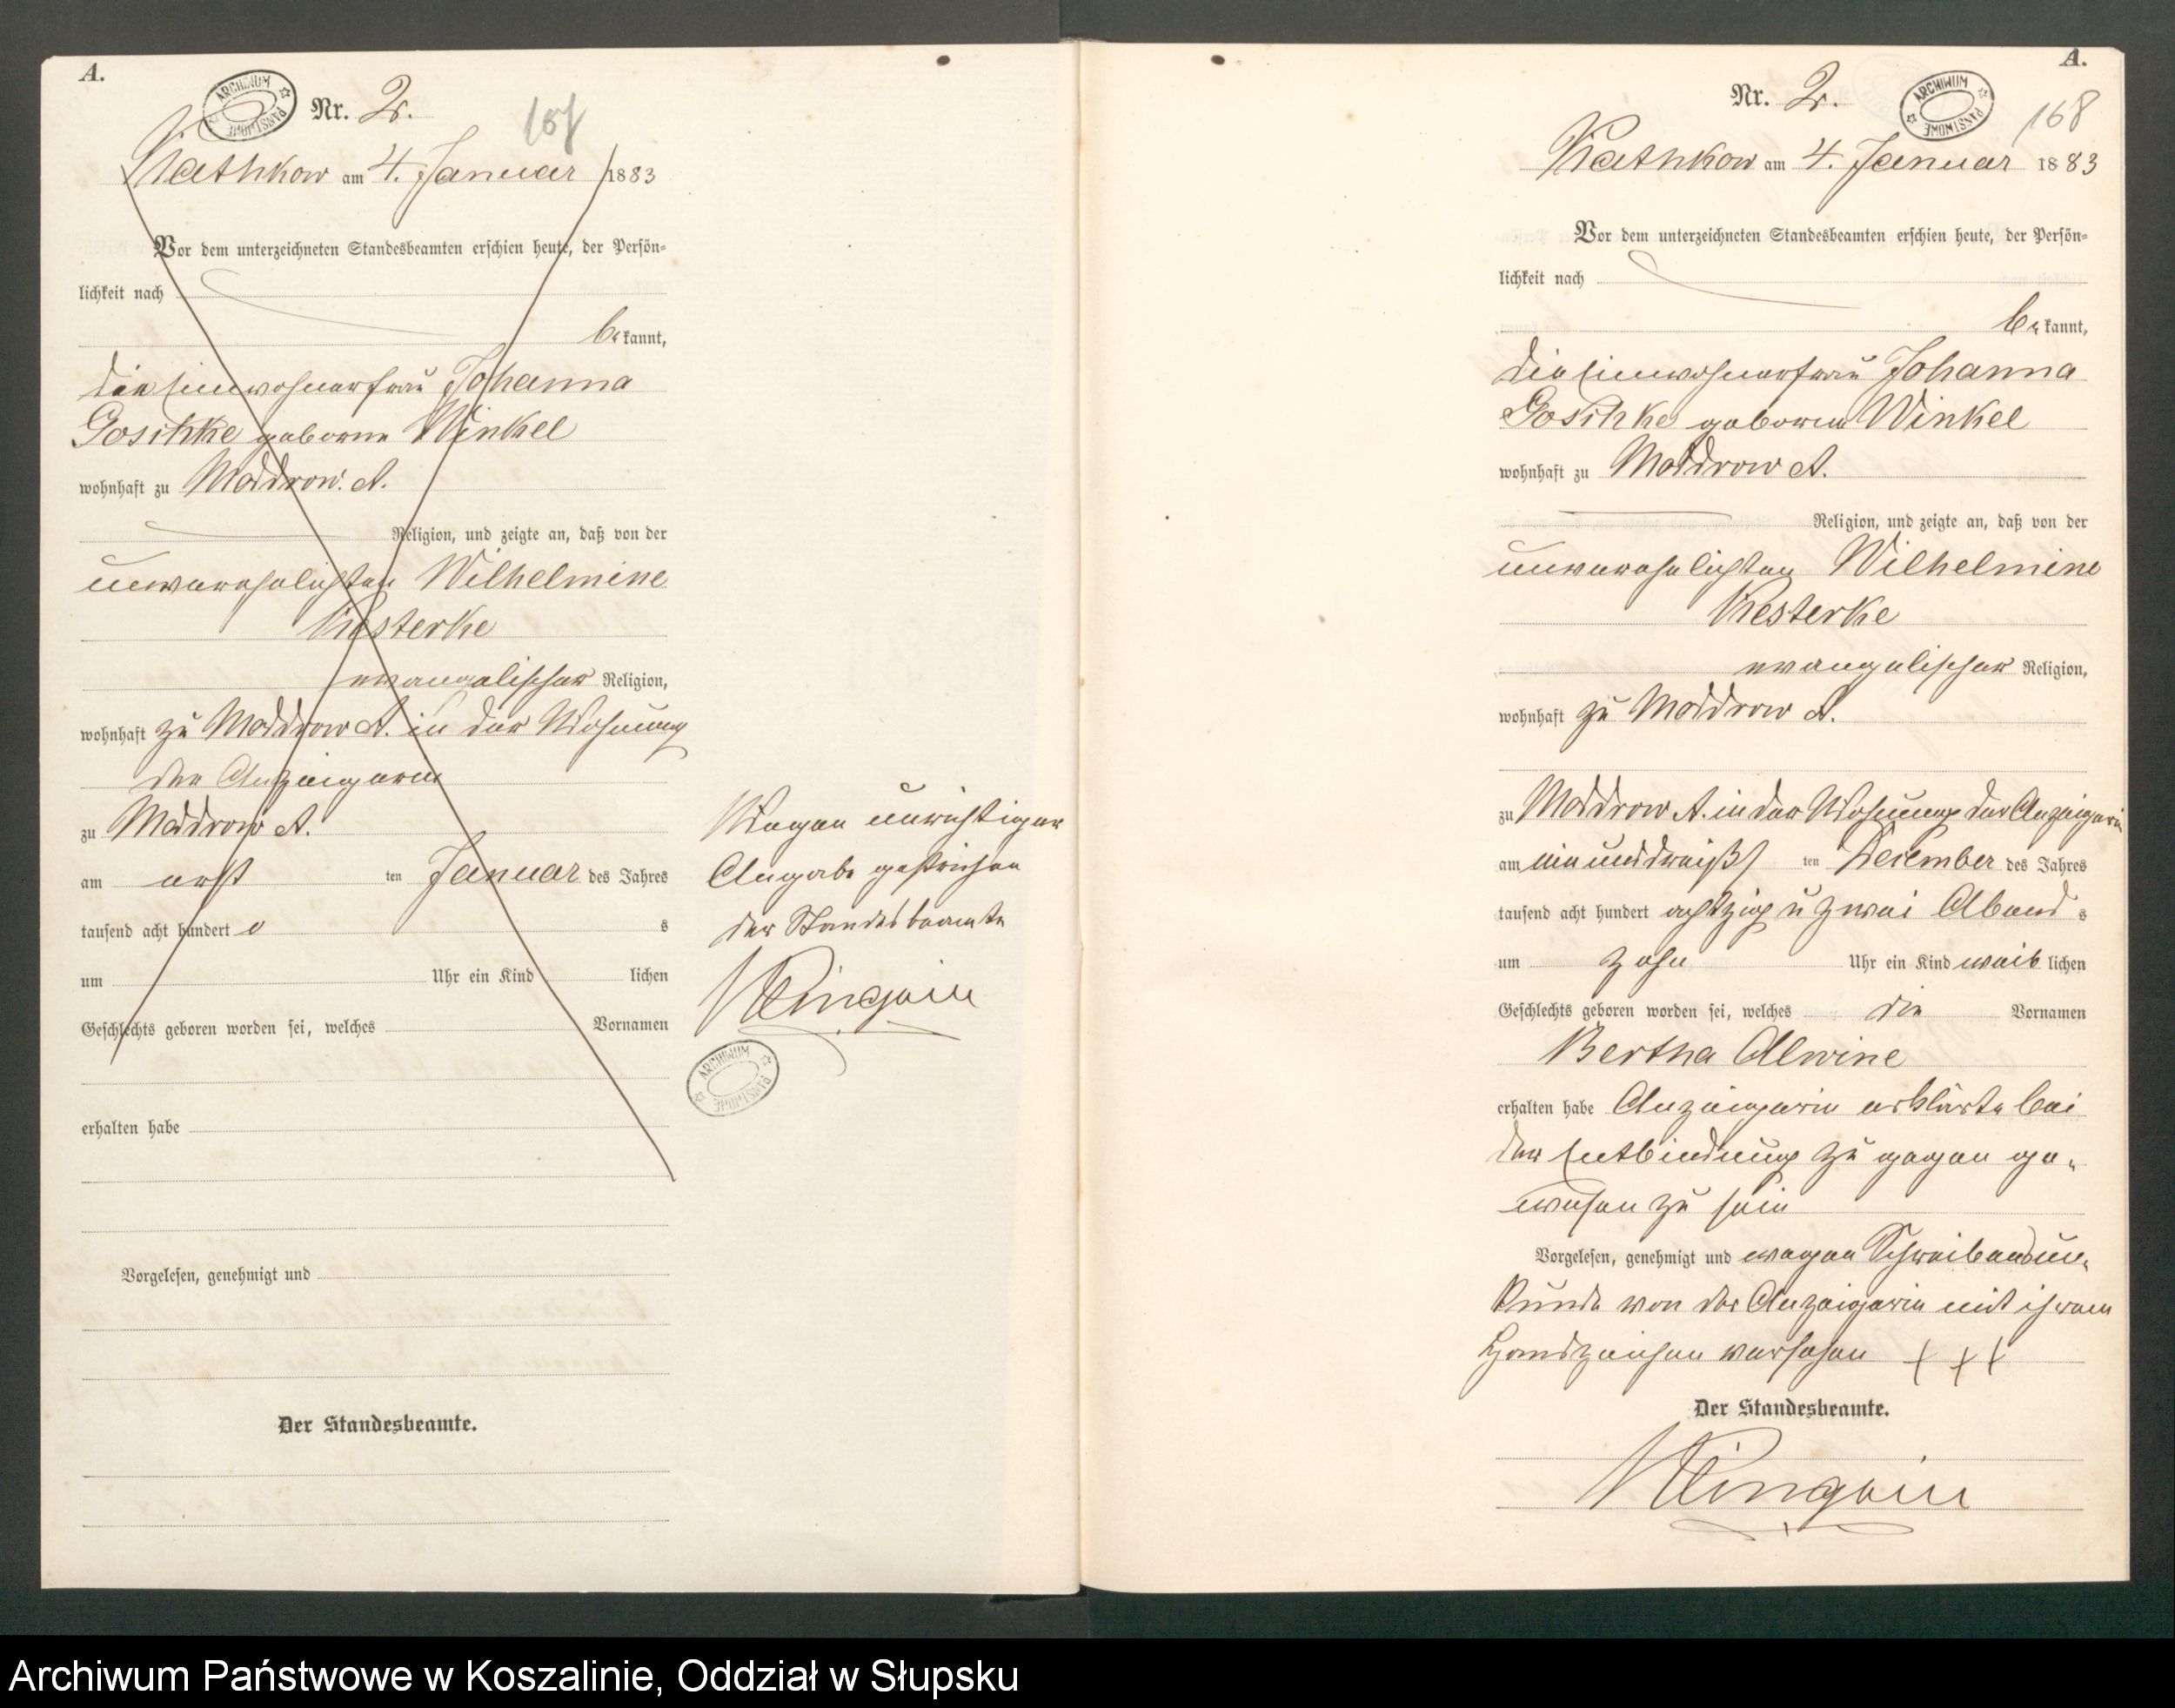 A.
ARCHIWUM PAŃSTWOWE
Nr. 2.
167
Rathkow am 4. Januar 1883
Vor dem unterzeichneten Standesbeamten erschien heute, der Persön-
lichkeit nach
be kannt,
die Einwohnerfrau Johanna
Goschke geborne Winkel
wohnhaft zu Moddrow A.
Religion, und zeigte an, daß von der
unverehelichten Wilhelmine
Kesterke
evangelischer Religion,
wohnhaft zu Moddrow A. in der Wohnung
der Anzeigerin
zu Moddrow A.
am erst ten Januar des Jahres
tausend acht hundert s
um Uhr ein Kind lichen
Geschlechts geboren worden sei, welches Vornamen
erhalten habe
Vorgelesen, genehmigt und
Der Standesbeamte.
Wegen unrichtiger
Angabe gestrichen
der Standesbeamte
ARCHIWUM PAŃSTWOWE
A.
Nr. 2.
ARCHIWUM PAŃSTWOWE
168
Rathkow am 4. Januar 1883
Vor dem unterzeichneten Standesbeamten erschien heute, der Persön-
lichkeit nach
be kannt,
die Einwohnerfrau Johanna
Goschke geborne Winkel
wohnhaft zu Moddrow A.
Religion, und zeigte an, daß von der
unverehelichten Wilhelmine
Kesterke
evangelischer Religion,
wohnhaft zu Moddrow A.
zu Moddrow A. in der Wohnung der Anzeigerin
am ein und dreißig ten Desember des Jahres
tausend acht hundert achtzig u zwei Abend s
um zehn Uhr ein Kind weib lichen
Geschlechts geboren worden sei, welches die Vornamen
Bertha Alwine
erhalten habe Anzeigerin erklärte bei
der Entbindung zu gegen ge-
wesen zu sein
Vorgelesen, genehmigt und wegen Schreibensun-
kunde von der Anzeigerin mit ihrem
Handzeichen versehen + + +
Der Standesbeamte.
Archiwum Państwowe w Koszalinie, Oddział w Słupsku